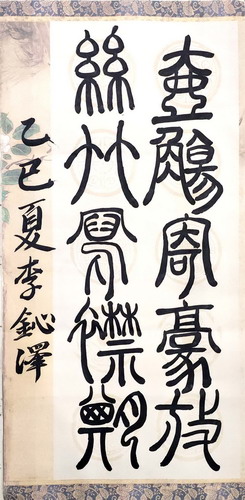 壺觴寄豪放
絲竹寫襟期
乙巳夏李鉍澤